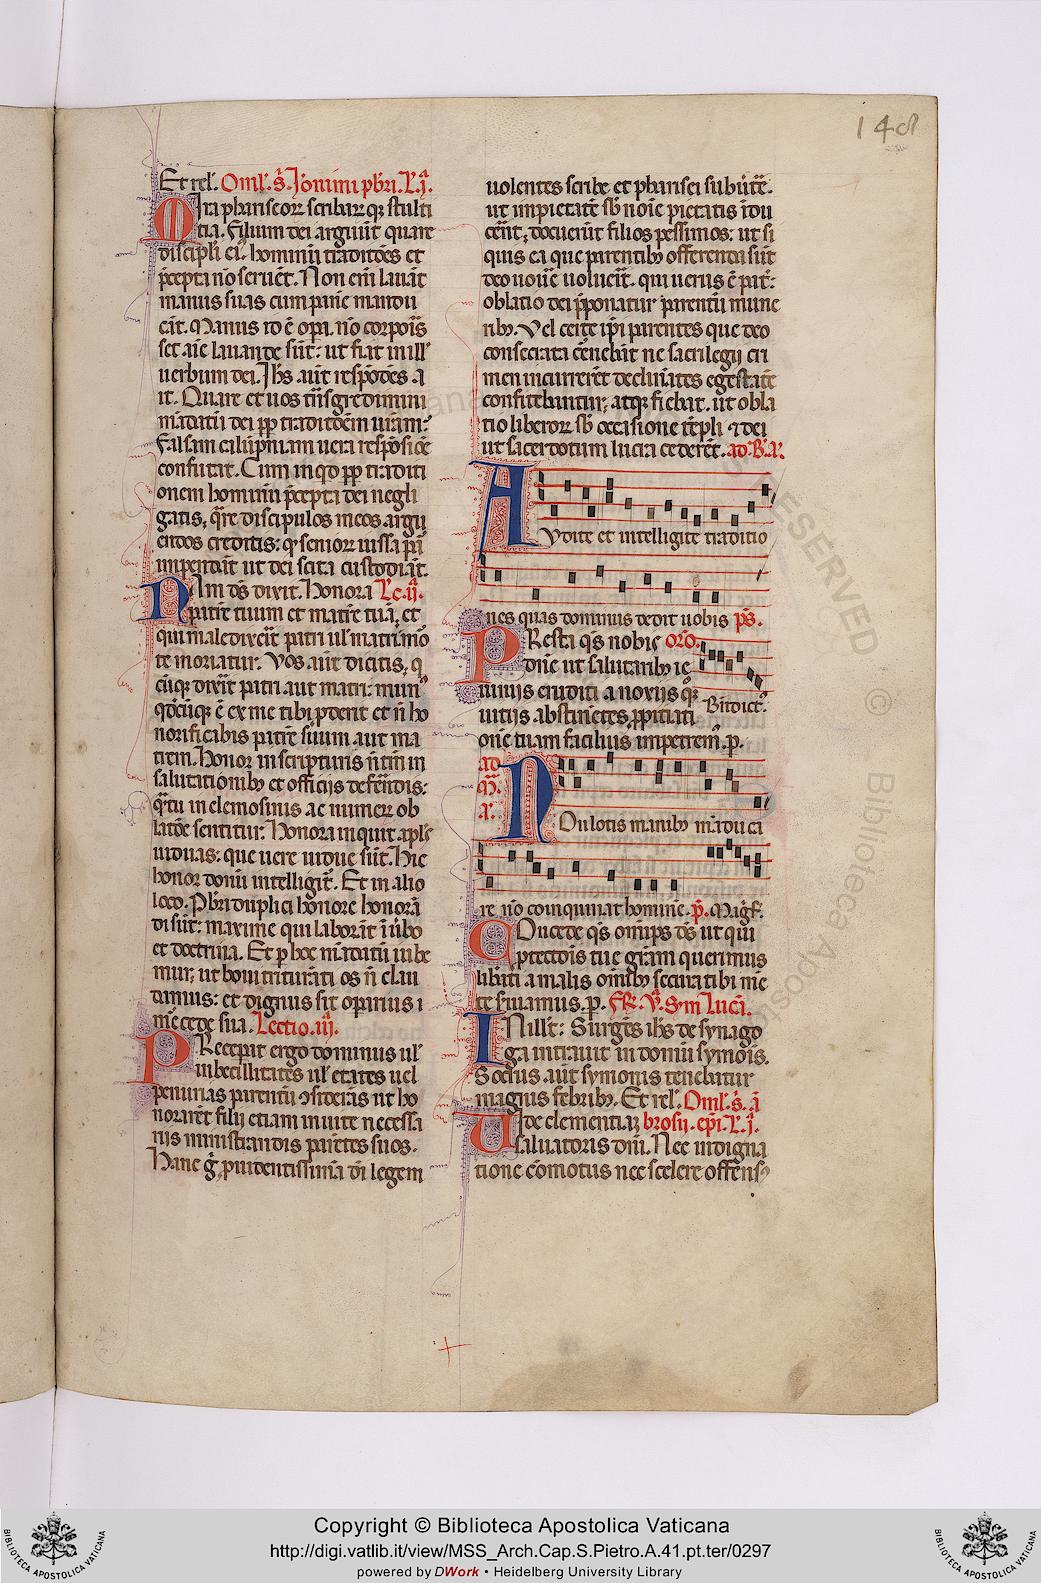 148
Et rel'. Oml'. s̄. Jeronimi pbr̄i. L'. j̄.
Mira phariseoꝝ scribaꝝ qꝫ stulti
tia. Filium dei arguūt quare
discipl'i eiꝰ hominū traditōēs et
p̄cepta nō seruēt. Non enī lauāt
manus suas cum panē mandu
cāt. Manus id ē oꝑa. nō corporis
set aīe lauande sūt: ut fiat in ill'
uerbum dei. Jhs aūt respōdēs. a
it. Quare et uos trāsgredimini
mādatū dei ꝓꝑ traditōēm urām:
Falsam calūpniam uera respōsiōe
confutat. Cum inqͩ ꝓꝑ traditi
onem hominū p̄cepta dei negli
gatis, q̄re discipulos meos argu
endos creditis: qꝫ senioꝝ iussa pa
impendāt ut dei scita custodiāt.
Nam dꝰ dixit. Honora Lc̄. ij̄.
patrē tuum et matrē tuā, et
qui maledixerit patri uł matri mor
te moriatur. Vos aūt dicitis, q
cūqꝫ dixīt patri aut matri: munꝰ
qͩcūqꝫ ē ex me tibi ꝓderit et n̄ ho
norificabis patrē suum aut ma
trem. Honor in scripturis nō tm̄ in
salutatiōnibꝫ et officijs defertur:
qᵃtū in elemosinis ac muneꝝ ob
latōe sentitur: Honora inquit apl's
uiduas: que uere uidue sūt. Hic
honor donū intelligit̄. Et in alio
loco. Pbr̄i duplici honore honorā
di sūt: maxime qui laborāt ī ūbo
et doctrina. Et ꝑ hoc mādatū iube
mur, ut boui triturāti os n̄ clau
damus: et dignus sit oꝑarius
mēcede sua. Lectio. iij̄.
Preceperat ergo dominus uł
imbecillitates uł etates uel
penurias parentū ɔsiderās ut ho
norarēt filij etiam in uite necessa
rijs ministrandis parētes suos.
Hanc g̊ ꝓuidentissimā dī legem
uolentes scribe et pharisei subūtē.
ut impietatē sb̄ noīe pietatis īdu
cerēt, docuerūt filios pessimos: ut si
quis ea que parentibꝫ offerenda sūt
deo uouē uoluerit. qui uerus ē pat̄:
oblatio dei p̄ponatur parentū mune
ribꝫ. Vel certe ip̄i parentes que deo
consecrata cernebāt ne sacrilegij cri
men incurrerēt declinātes egestatē
conficiebantur, atqꝫ fiebat. ut obla
tio liberoꝝ sb̄ occasione tēpli ⁊ dei
ut sacerdotum lucra cederēt. ad. B'. A'.
Audite et intelligite traditio
nes quas dominus dedit uobis p̄s.
Presta qs nobis or̄o.
dn̄e ut salutaribꝫ ie
iunijs eruditi a noxijs qͦꝫ Bn̄dictꝰ.
uitijs abstinētes ꝓpitiati
onē tuam facilius impetremꝰ. ꝑ.
ad m̄. A'.
Non lotis manibꝫ māduca
re nō coinquinat hominē. p̄. Magf.
Concede qs omīps dꝰ ut qui
ꝓtectōis tue grām querimus
libāti a malis omībꝫ secura tibi mē
te ƒuiamus. ꝑ. FR. V. Sꝫm Lucā.
In illt̄: Surgēs ihs de synago
ga intrauit in domū symōis.
Socrus aūt symonis tenebatur
magnis febribꝫ. Et rel'. Oml'. s̄. ā
Uide clementiaꝝ brosij. epī. L'. j̄.
saluatoris dn̄i. Nec indigna
tione cōmotus nec scelere offensꝰ
Copyright © Biblioteca Apostolica Vaticana
http://digi.vatlib.it/view/MSS_Arch.Cap.S.Pietro.A.41.pt.ter/0297
powered by DWork • Heidelberg University Library